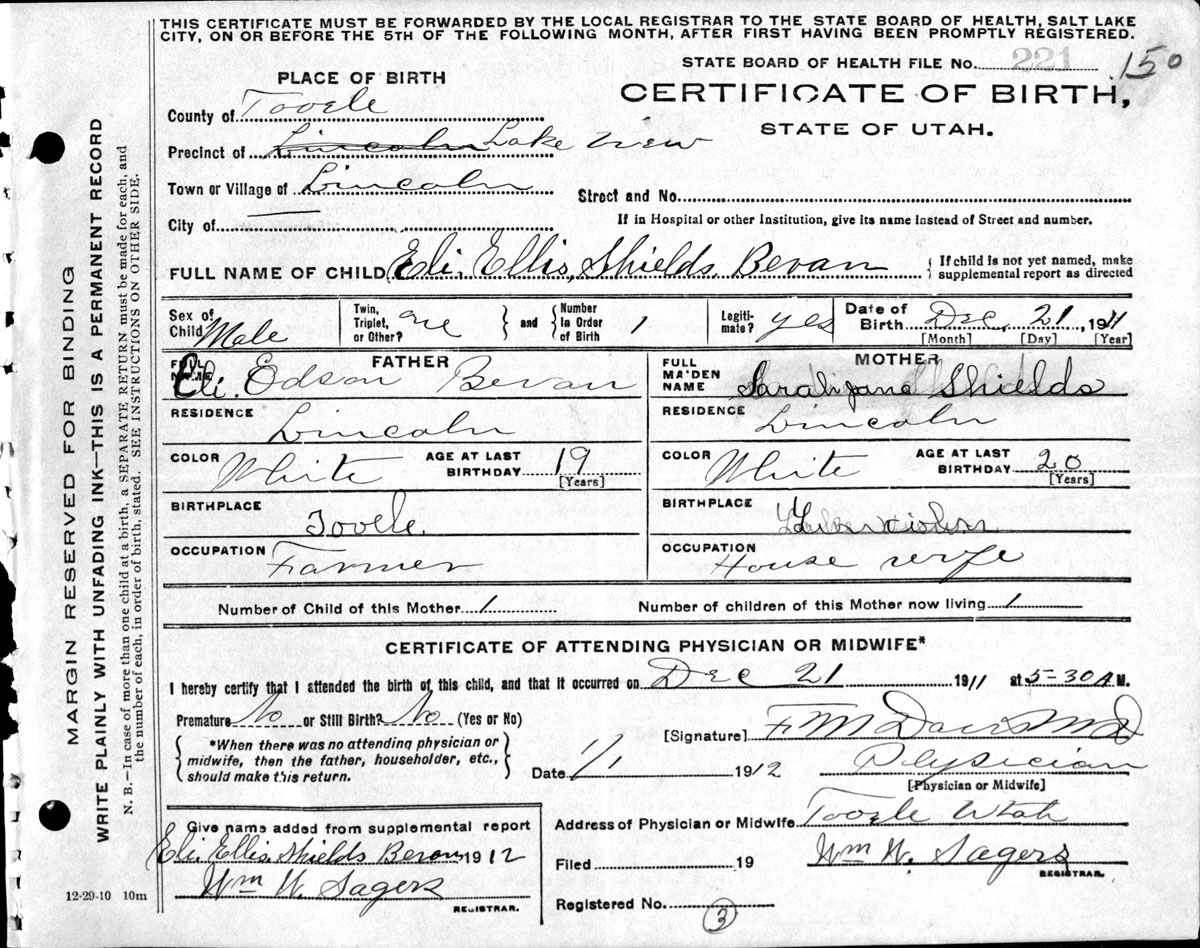 THIS CERTIFICATE MUST BE FORWARDED BY THE LOCAL REGISTRAR TO THE STATE BOARD OF HEALTH, SALT LAKE
CITY, ON OR BEFORE THE 5TH OF THE FOLLOWING MONTH, AFTER FIRST HAVING BEEN PROMPTLY REGISTERED.
STATE BOARD OF HEALTH FILE No. 221 150
PLACE OF BIRTH
CERTIFICATE OF BIRTH,
STATE OF UTAH.
County of Tooele
Precinct of Lincoln Lake View
Town or Village of Lincoln Street and No.
City of — If in Hospital or other Institution, give its name instead of Street and number.
FULL NAME OF CHILD Eli. Ellis, Shields Bevan { If child is not yet named, make
supplemental report as directed
Sex of Child Male Twin, Triplet, or Other? one } and { Number in Order of Birth 1 Legiti-mate? yes Date of Birth Dec, 21, 1911
[Month] [Day] [Year]
FATHER MOTHER
FULL NAME Eli. Edson Bevan FULL MAIDEN NAME Sarah Jane Shields
RESIDENCE Lincoln RESIDENCE Lincoln
COLOR White AGE AT LAST BIRTHDAY 19 [Years] COLOR White AGE AT LAST BIRTHDAY 20 [Years]
BIRTHPLACE Tooele. BIRTHPLACE
OCCUPATION Farmer OCCUPATION House wife
Number of Child of this Mother 1 Number of children of this Mother now living 1
CERTIFICATE OF ATTENDING PHYSICIAN OR MIDWIFE*
I hereby certify that I attended the birth of this child, and that it occurred on Dec 21 1911 at 5-30 A M.
Premature No or Still Birth? No (Yes or No)
[Signature] F M Davis MD
{ *When there was no attending physician or
midwife, then the father, householder, etc.,
should make this return. }
Date 1/1 1912 Physician
[Physician or Midwife]
Give name added from supplemental report
Eli. Ellis. Shields Bevan 1912
Wm W. Sagers
REGISTRAR.
Address of Physician or Midwife Tooele Utah
Filed 19 Wm W. Sagers
REGISTRAR.
Registered No. 3
12-29-10 10m
MARGIN RESERVED FOR BINDING
WRITE PLAINLY WITH UNFADING INK—THIS IS A PERMANENT RECORD
N. B.—In case of more than one child at a birth, a SEPARATE RETURN must be made for each, and
the number of each, in order of birth, stated. SEE INSTRUCTIONS ON OTHER SIDE.